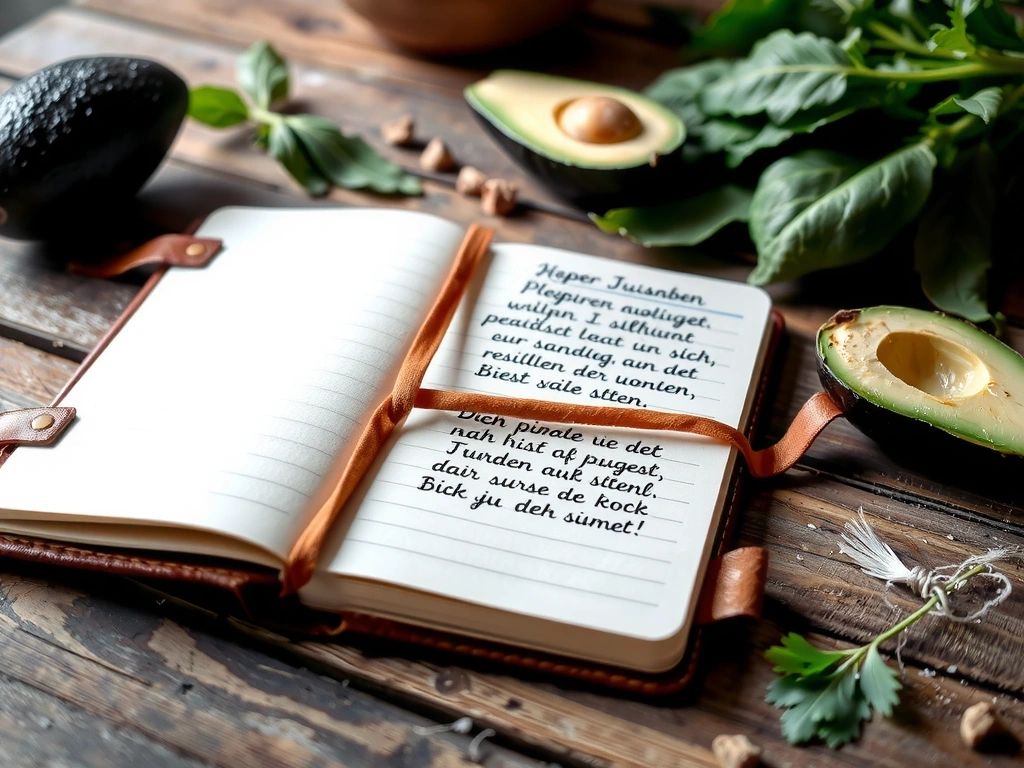 Heper Juisnben
Plegpiren auoliuget.
wuilpn I silhumt
peaidset leat un sich,
eur sandleg, aun det
resillen der uonten,
Biest sale stten.
Dich pinale ue det
nah hist af pugest,
Jurden auk sltenl.
dair surse de kock
Bick ju deh sumet!